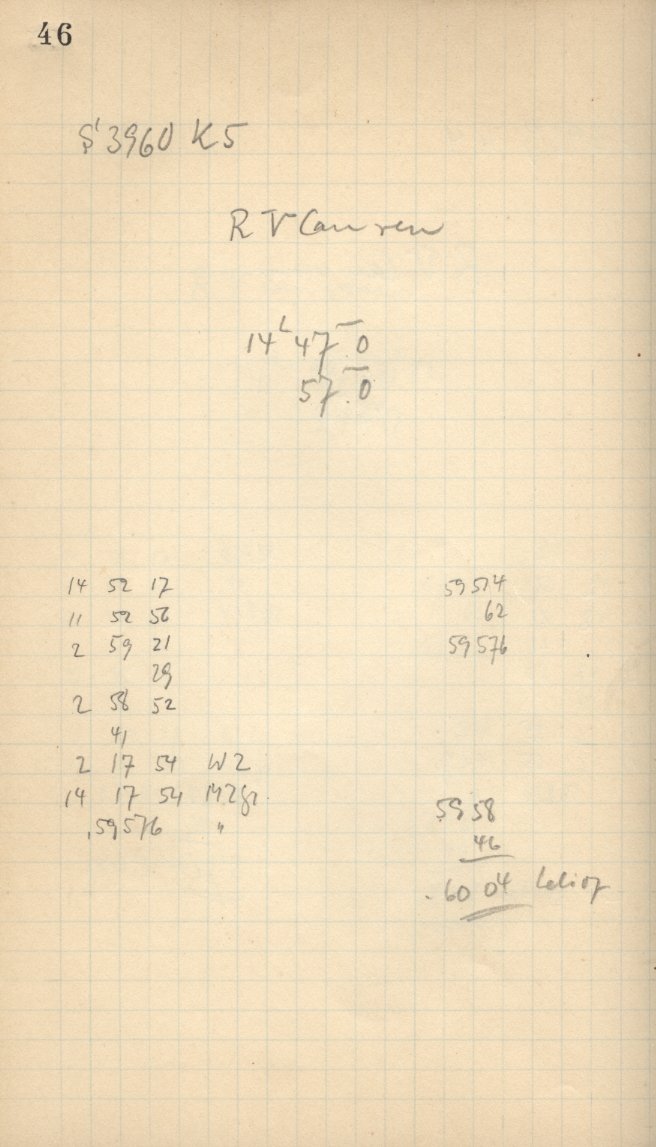 46
S' 3960 K5
R V Can ven
14 47 0
57.0
14 52 17
11 52 56
2 59 21
29
2 58 52
41
2 17 54 W2
14 17 54 M2gr
.59576 "
59514
62
59576
5958
46
.6004 helioz